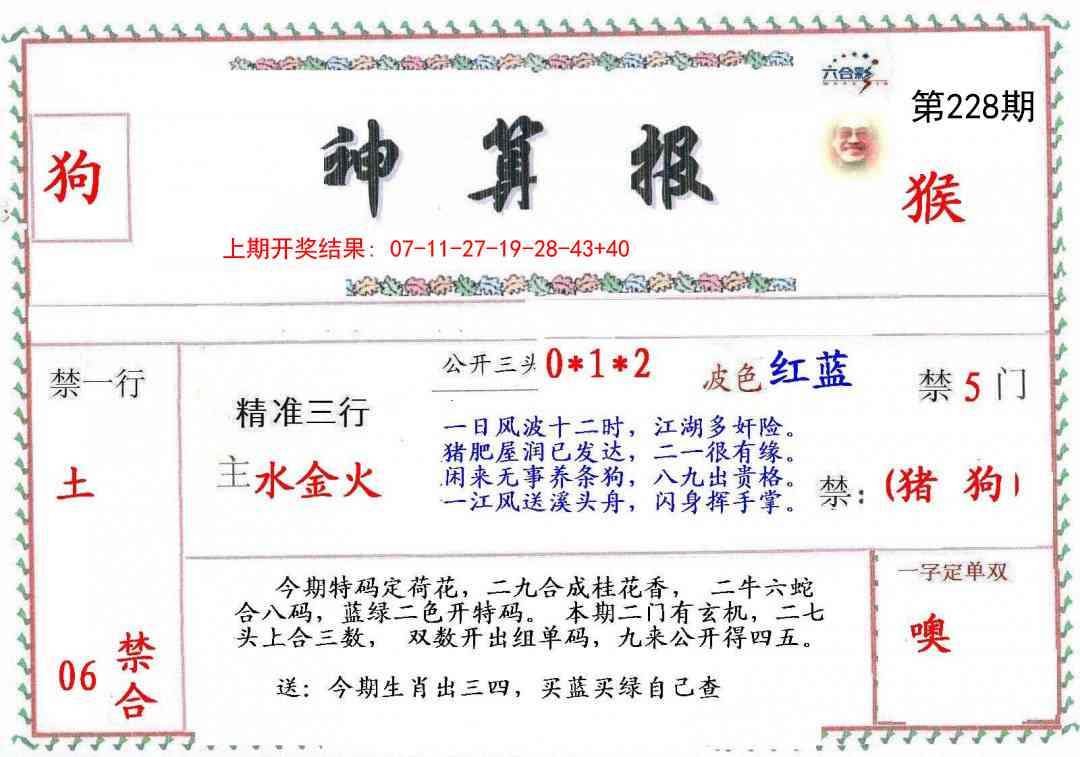 六合彩
第228期
狗
神算报
猴
上期开奖结果：07-11-27-19-28-43+40
禁一行
土
06
禁合
精准三行
主水金火
公开三头 0*1*2
波色 红蓝
一日风波十二时，江湖多奸险。
猪肥屋润已发达，二一很有缘。
闲来无事养条狗，八九出贵格。
一江风送溪头舟，闪身挥手掌。
禁5门
禁：(猪 狗)
今期特码定荷花，二九合成桂花香， 二牛六蛇
合八码，蓝绿二色开特码。 本期二门有玄机，二七
头上合三数， 双数开出组单码，九来公开得四五。
送：今期生肖出三四，买蓝买绿自己查
一字定单双
噢